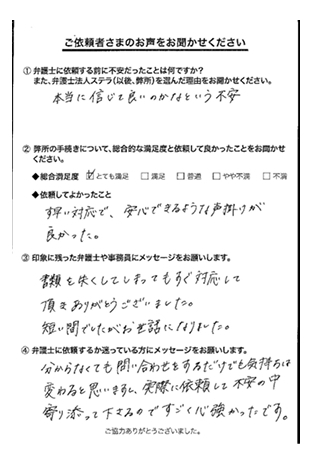 ご依頼者さまのお声をお聞かせください
① 弁護士に依頼する前に不安だったことは何ですか?
また、弁護士法人ステラ(以後、弊所)を選んだ理由をお聞かせください。
本当に信じて良いのかなという不安
② 弊所の手続きについて、総合的な満足度と依頼して良かったことをお聞かせ
ください。
◆総合満足度 ☑とても満足 □満足 □普通 □やや不満 □不満
◆依頼してよかったこと
早い対応で、安心できるような声掛けが
良かった。
③ 印象に残った弁護士や事務員にメッセージをお願いします。
書類を失くしてしまってもすぐ対応して
頂きありがとうございました。
短い間でしたがお世話になりました。
④ 弁護士に依頼するか迷っている方にメッセージをお願いします。
分からなくても問い合わせをするだけでも気持ちは
変わると思いますし、実際に依頼して不安の中
寄り添って下さるのですごく心強かったです。
ご協力ありがとうございました。